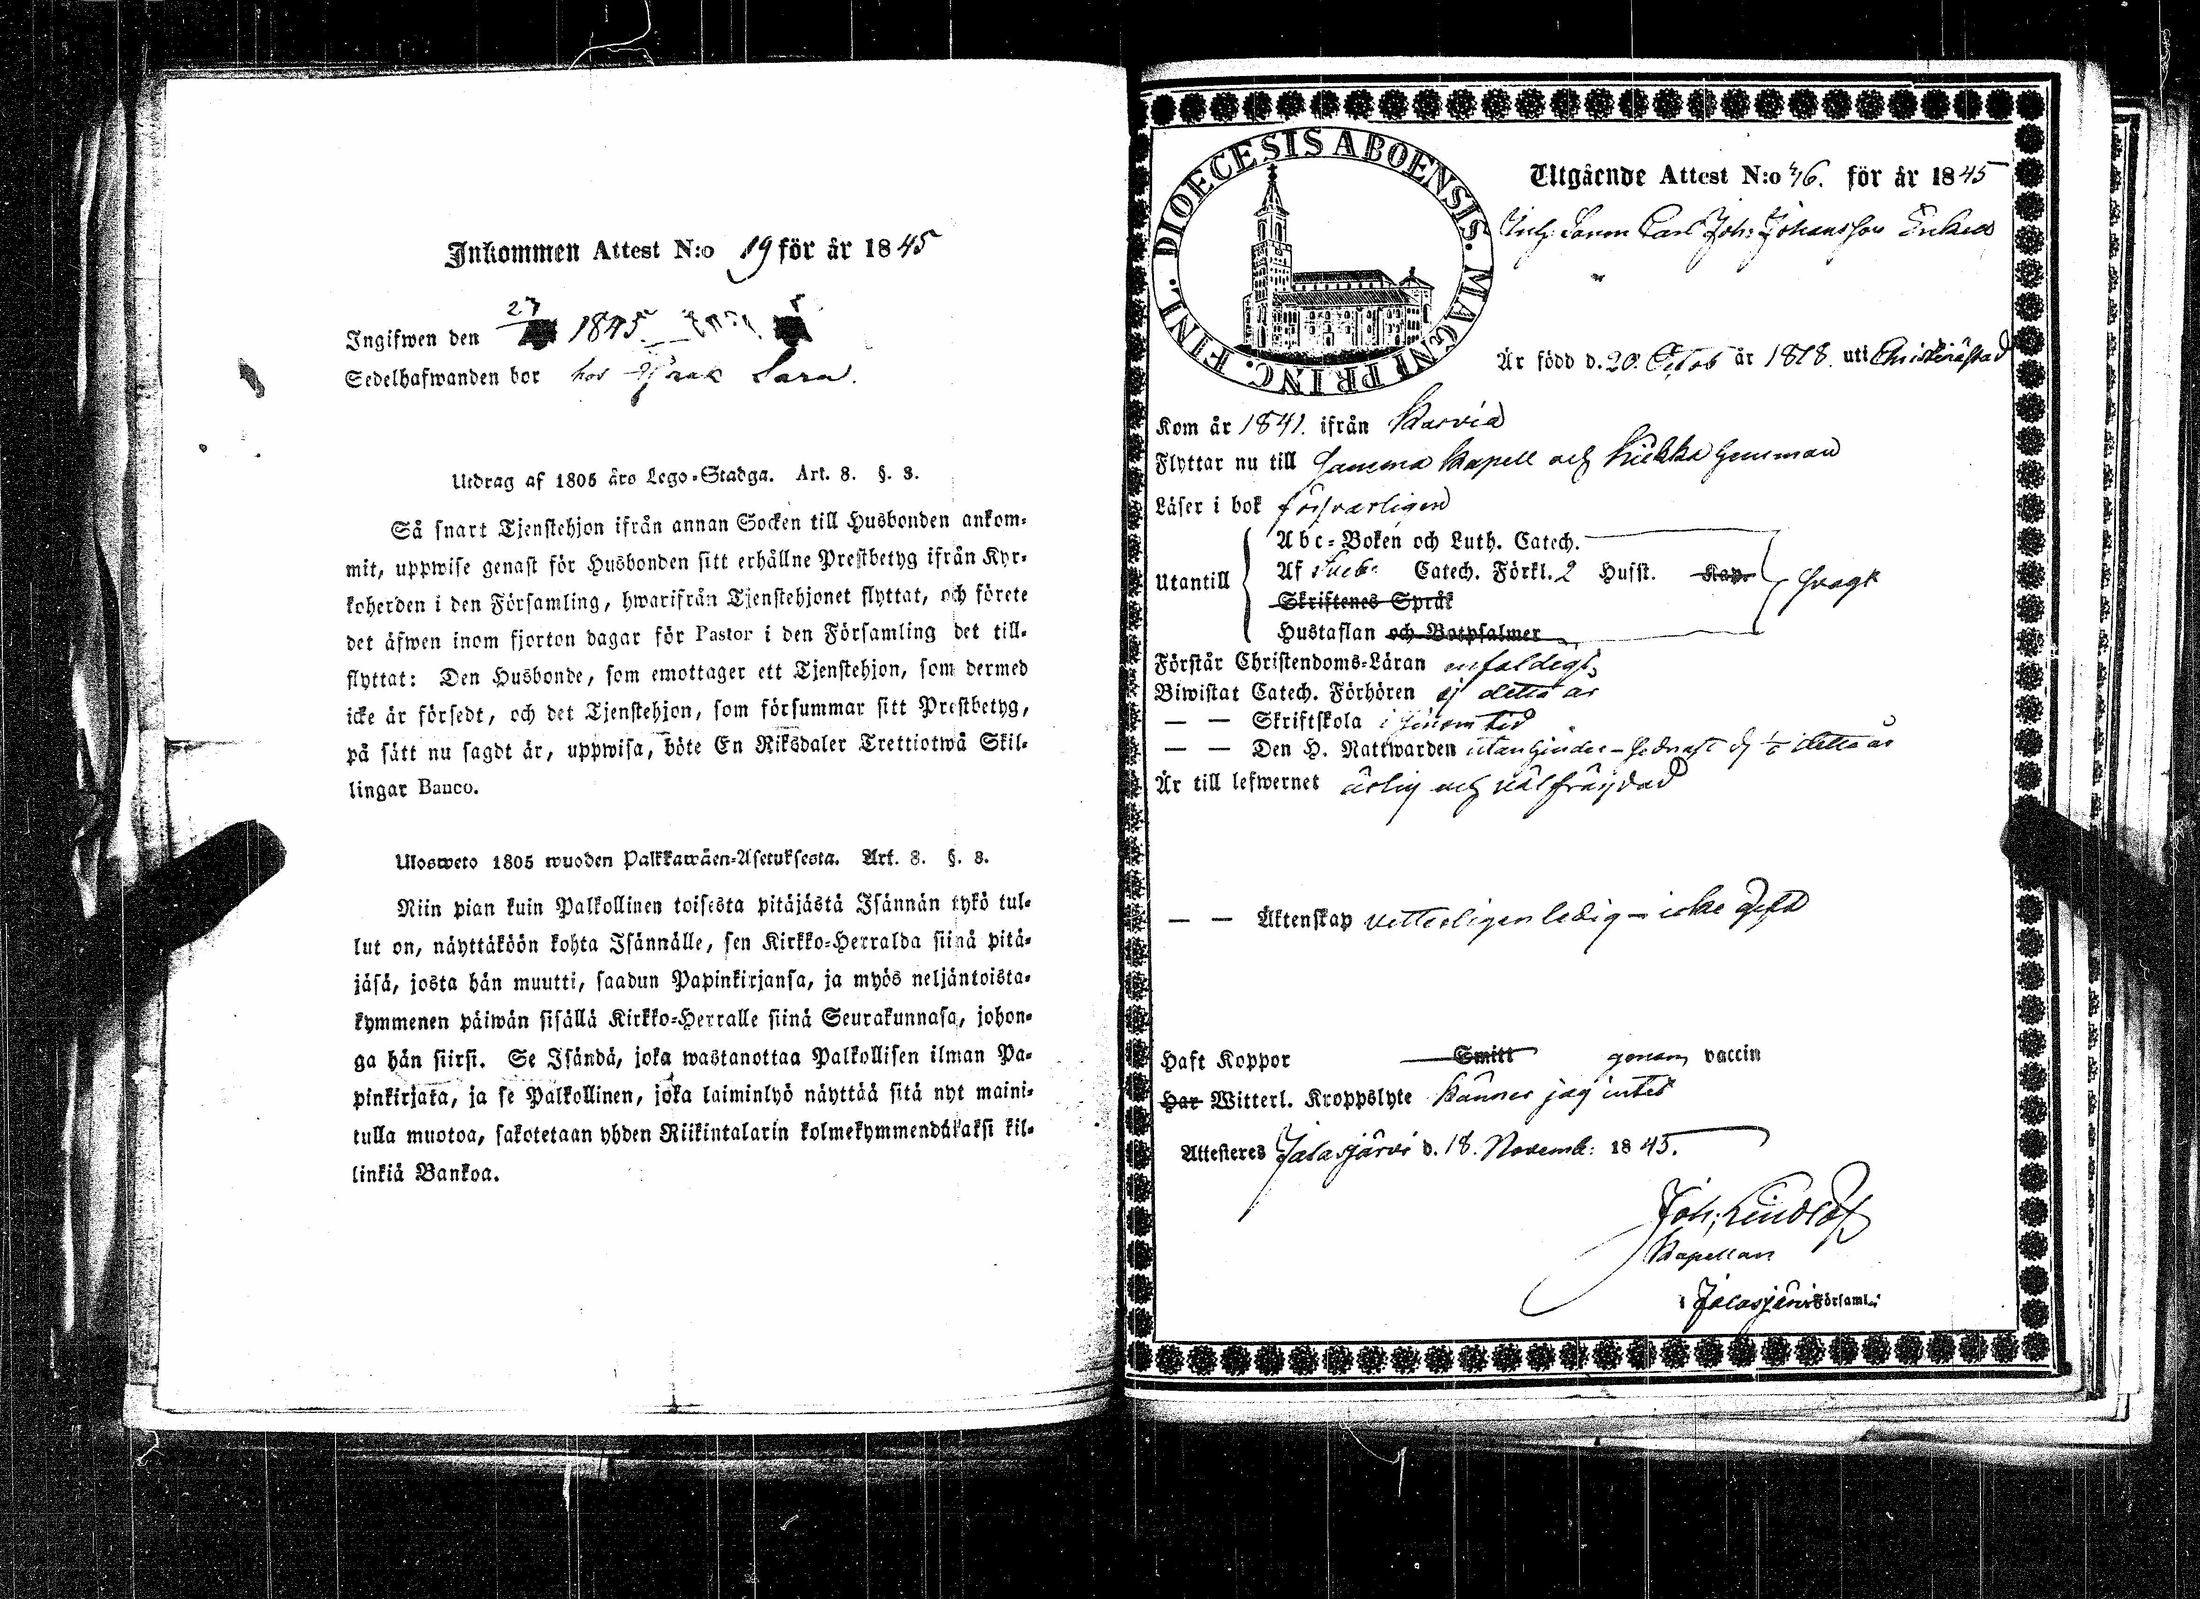 Inkommen Attest N:o 19 för år 1845
Ingifwen den 27 1845.
Sedelhafwanden bor hos Sara.
Utdrag af 1805 års Lego-Stadga. Art. 8. §. 3.
Så snart Tjenstehjon ifrån annan Socken till Husbonden ankom-
mit, uppwise genast för Husbonden sitt erhållne Prestbetyg ifrån Kyr-
koherden i den Församling, hwarifrån Tjenstehjonet flyttat, och förete
det äfwen inom fjorton dagar för Pastor i den Församling det till-
flyttat: Den Husbonde, som emottager ett Tjenstehjon, som dermed
icke är försedt, och det Tjenstehjon, som försummar sitt Prestbetyg,
på sätt nu sagdt är, uppwisa, böte En Riksdaler Trettiotwå Skil-
lingar Banco.
Ulosweto 1805 wuoden Palkkawäen-Asetuksesta. Art. 8. §. 3.
Niin pian kuin Palkollinen toisesta pitäjästä Isännän tykö tul-
lut on, näyttäköön kohta Isännälle, sen Kirkko-Herralda siinä pitä-
jäsä, josta hän muutti, saadun Papinkirjansa, ja myös neljäntoista-
kymmenen päiwän sisällä Kirkko-Herralle siinä Seurakunnasa, johon-
ga hän siirsi. Se Isändä, joka wastanottaa Palkollisen ilman Pa-
pinkirjata, ja se Palkollinen, joka laiminlyö näyttää sitä nyt maini-
tulla muotoa, sakotetaan yhden Riikintalarin kolmekymmendäkaksi kil-
linkiä Bankoa.
DIOECESIS ABOENSIS. MAGNI PRINC. FINL.
Utgående Attest N:o 46. för år 1845
Carl Joh: Johansson
Är född d. 20. Octob år 1818. uti Christinästad
Kom år 1841. ifrån Karvia
Flyttar nu till samma Kapell och hemman
Läser i bok försvarligen
Utantill
Abc-Boken och Luth. Catech.
Af Sveb. Catech. Förkl. 2 Husst. Kap. svagt
Skriftenes Språk
Hustaflan och Botpsalmer
Förstår Christendoms-Läran enfaldigt
Biwistat Catech. Förhören ej detta år
— — Skriftskola i sinom tid
— — Den H. Nattwarden utan hinder - sednast d. detta år
Är till lefwernet ärlig och välfräjdad
— — Äktenskap vetterligen ledig - icke
Haft Koppor Smitt genom vaccin
Har Witterl. Kroppslyte känner jag intet
Attesteres Jalasjärvi d. 18. Novemb: 1845.
Joh: Lindlöf
Kapellan
i Jalasjärvi Församl.